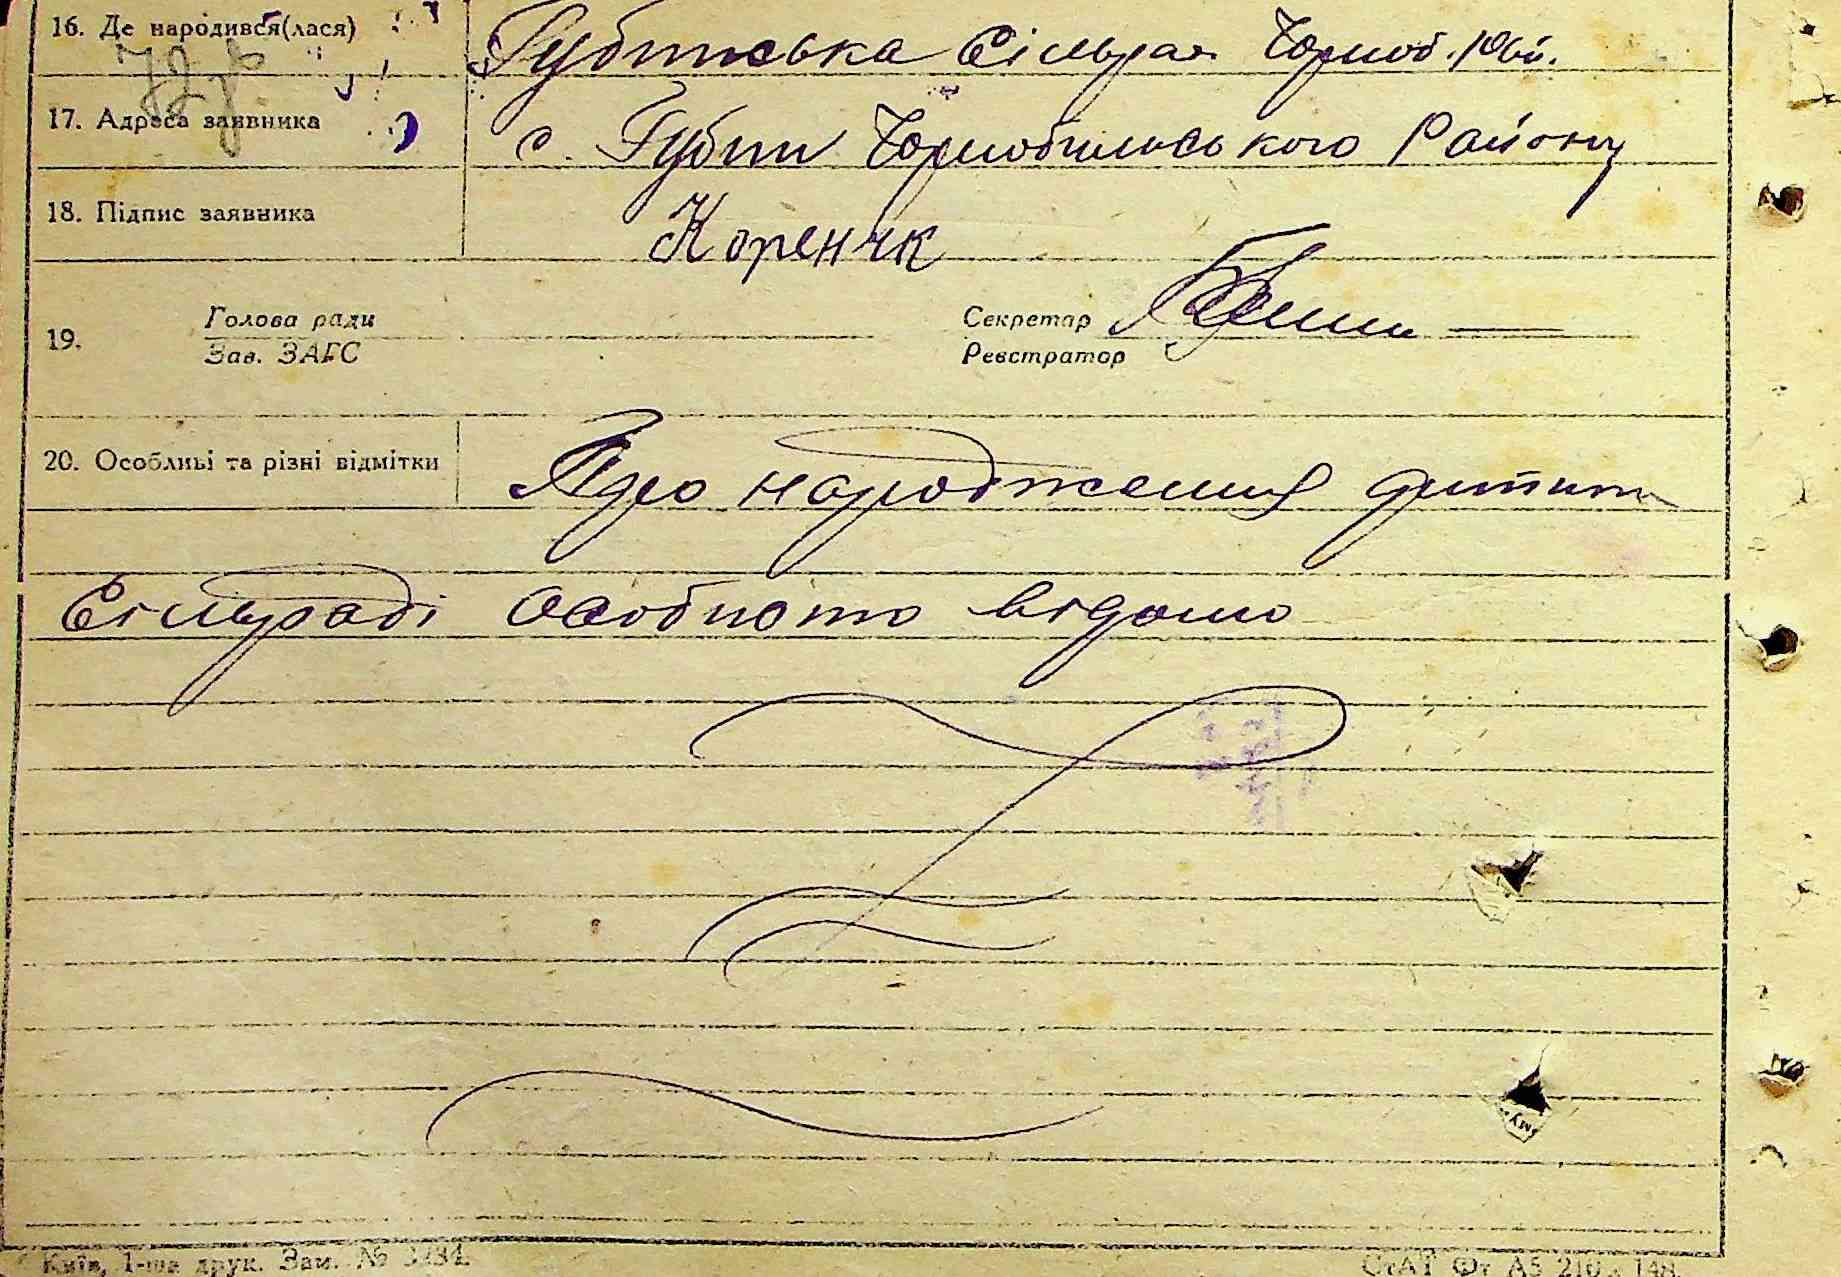 16. Де народився(лася) Губинська Сільрада Чорноб. рай.
17. Адреса заявника с. Губин Чорнобильського Району
18. Підпис заявника Коренчк
19. Голова ради Секретар
Зав. ЗАГС Реєстратор
20. Особливі та різні відмітки Про народження дитини
Сільраді особисто відомо
Київ, 1-ша друк. Зам. №
СтАТ Фт А5 210 × 148